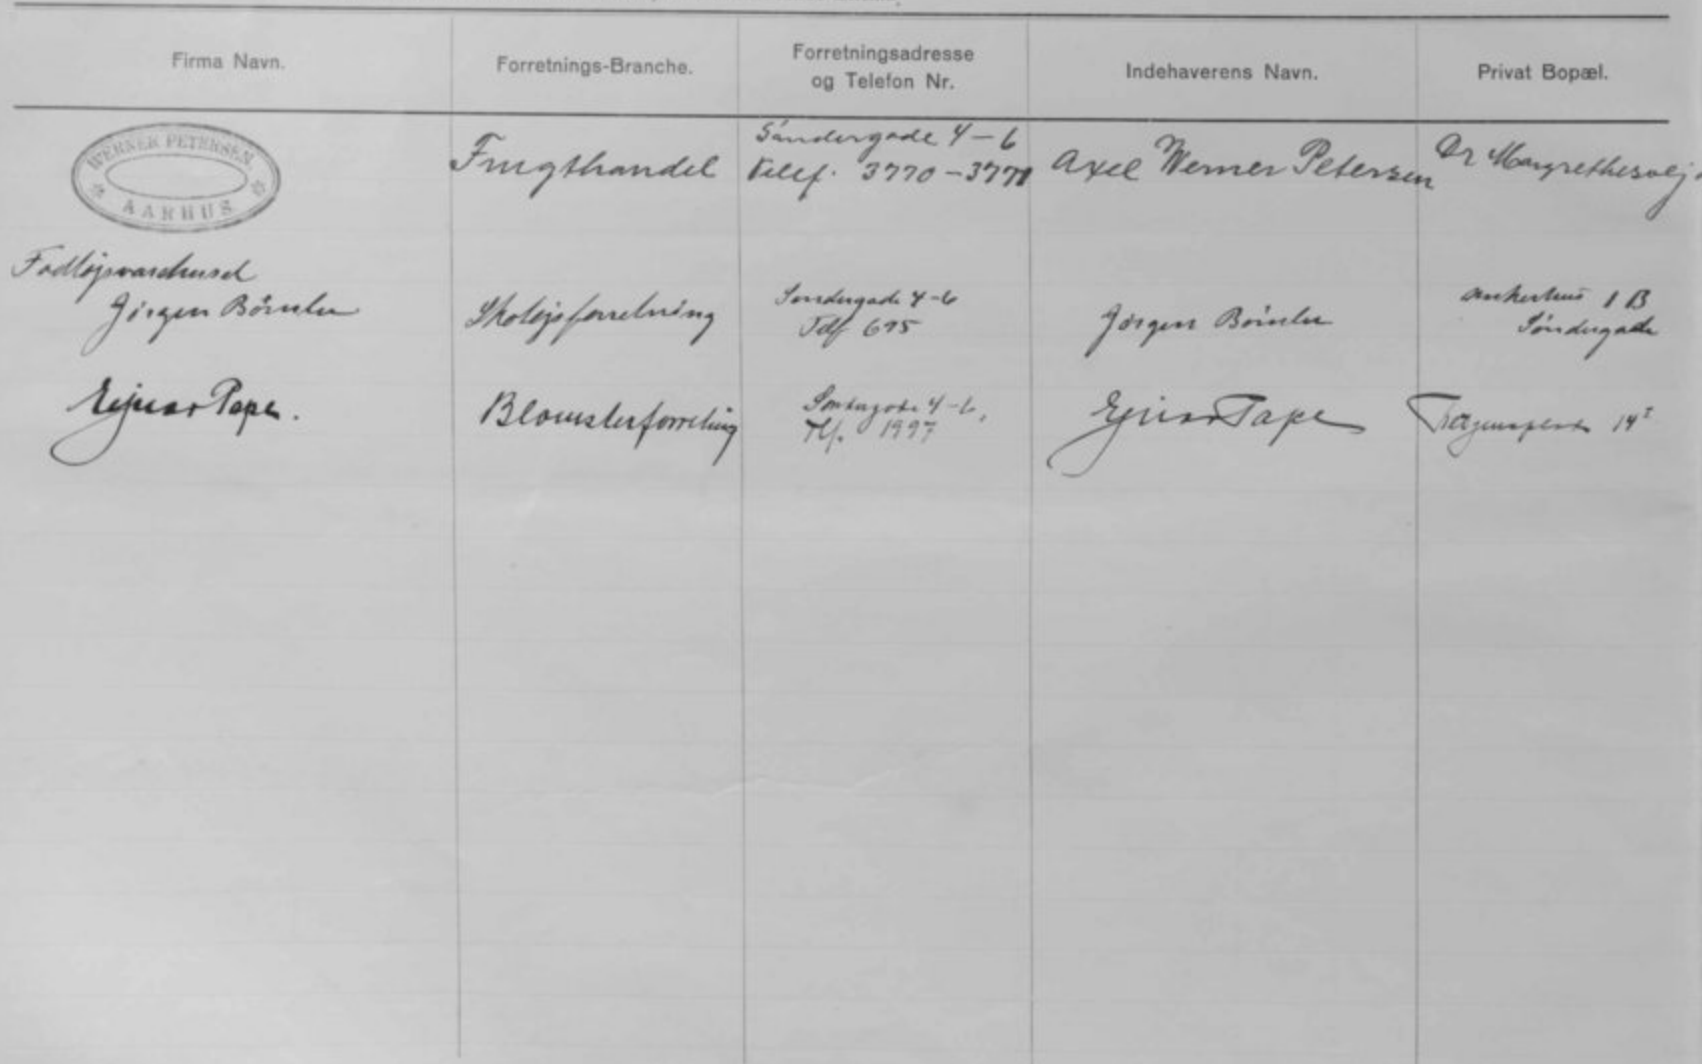 Firma Navn.
Forretnings-Branche.
Forretningsadresse
og Telefon Nr.
Indehaverens Navn.
Privat Bopæl.
WERNER PETERSEN
AARHUS
Frugthandel
Søndergade 4-6
Telef. 3770-3771
Axel Werner Petersen
Dr Margrethesvej
Fodtøjsvarehuset
Jørgen
Skotøjsforretning
Søndergade 4-6
Telf 675
Jørgen
1 B
Søndergade
Ejnar Pape.
Blomsterforretning
Søndergade 4-6,
Tlf. 1997
Ejnar Pape
14